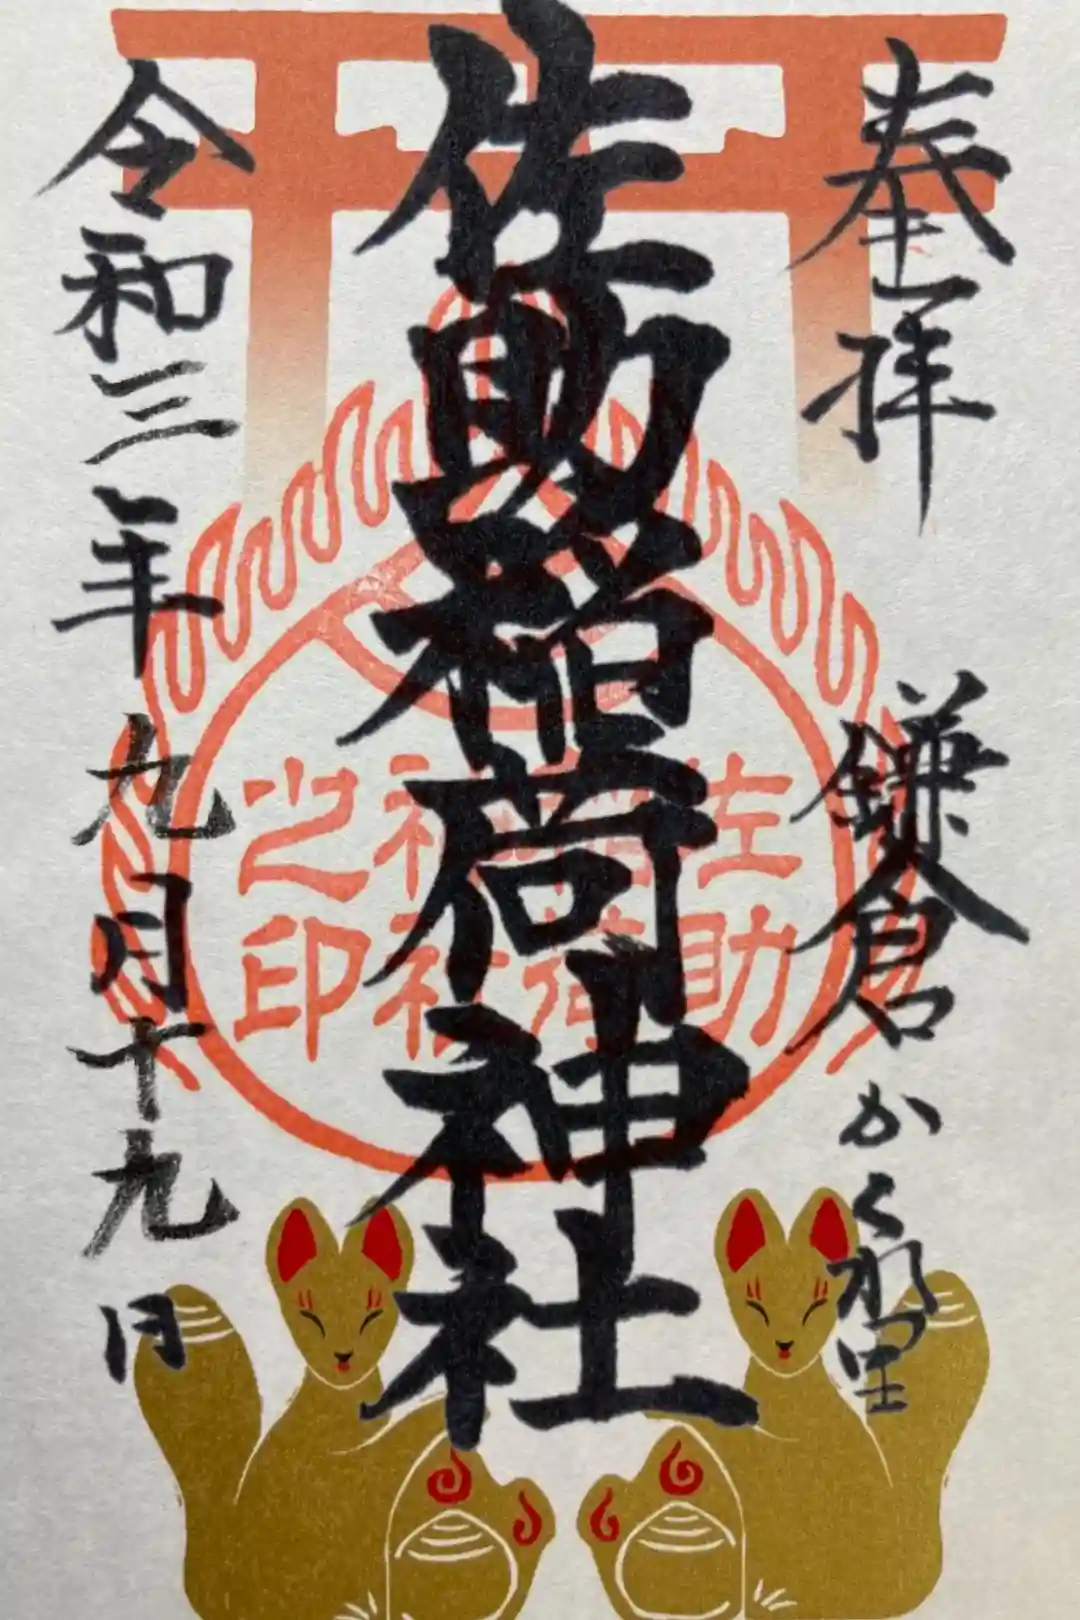 奉拝
鎌倉かくれ里
佐助稲荷神社
令和三年九月十九日
佐助
稲荷
神社
之印